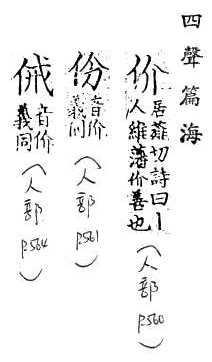 四聲篇海
价 居薤切詩曰丨
人維藩价善也
（人部 P.560）
份 音价
義同
（人部 P.561）
音价
義同
（人部 P.564）